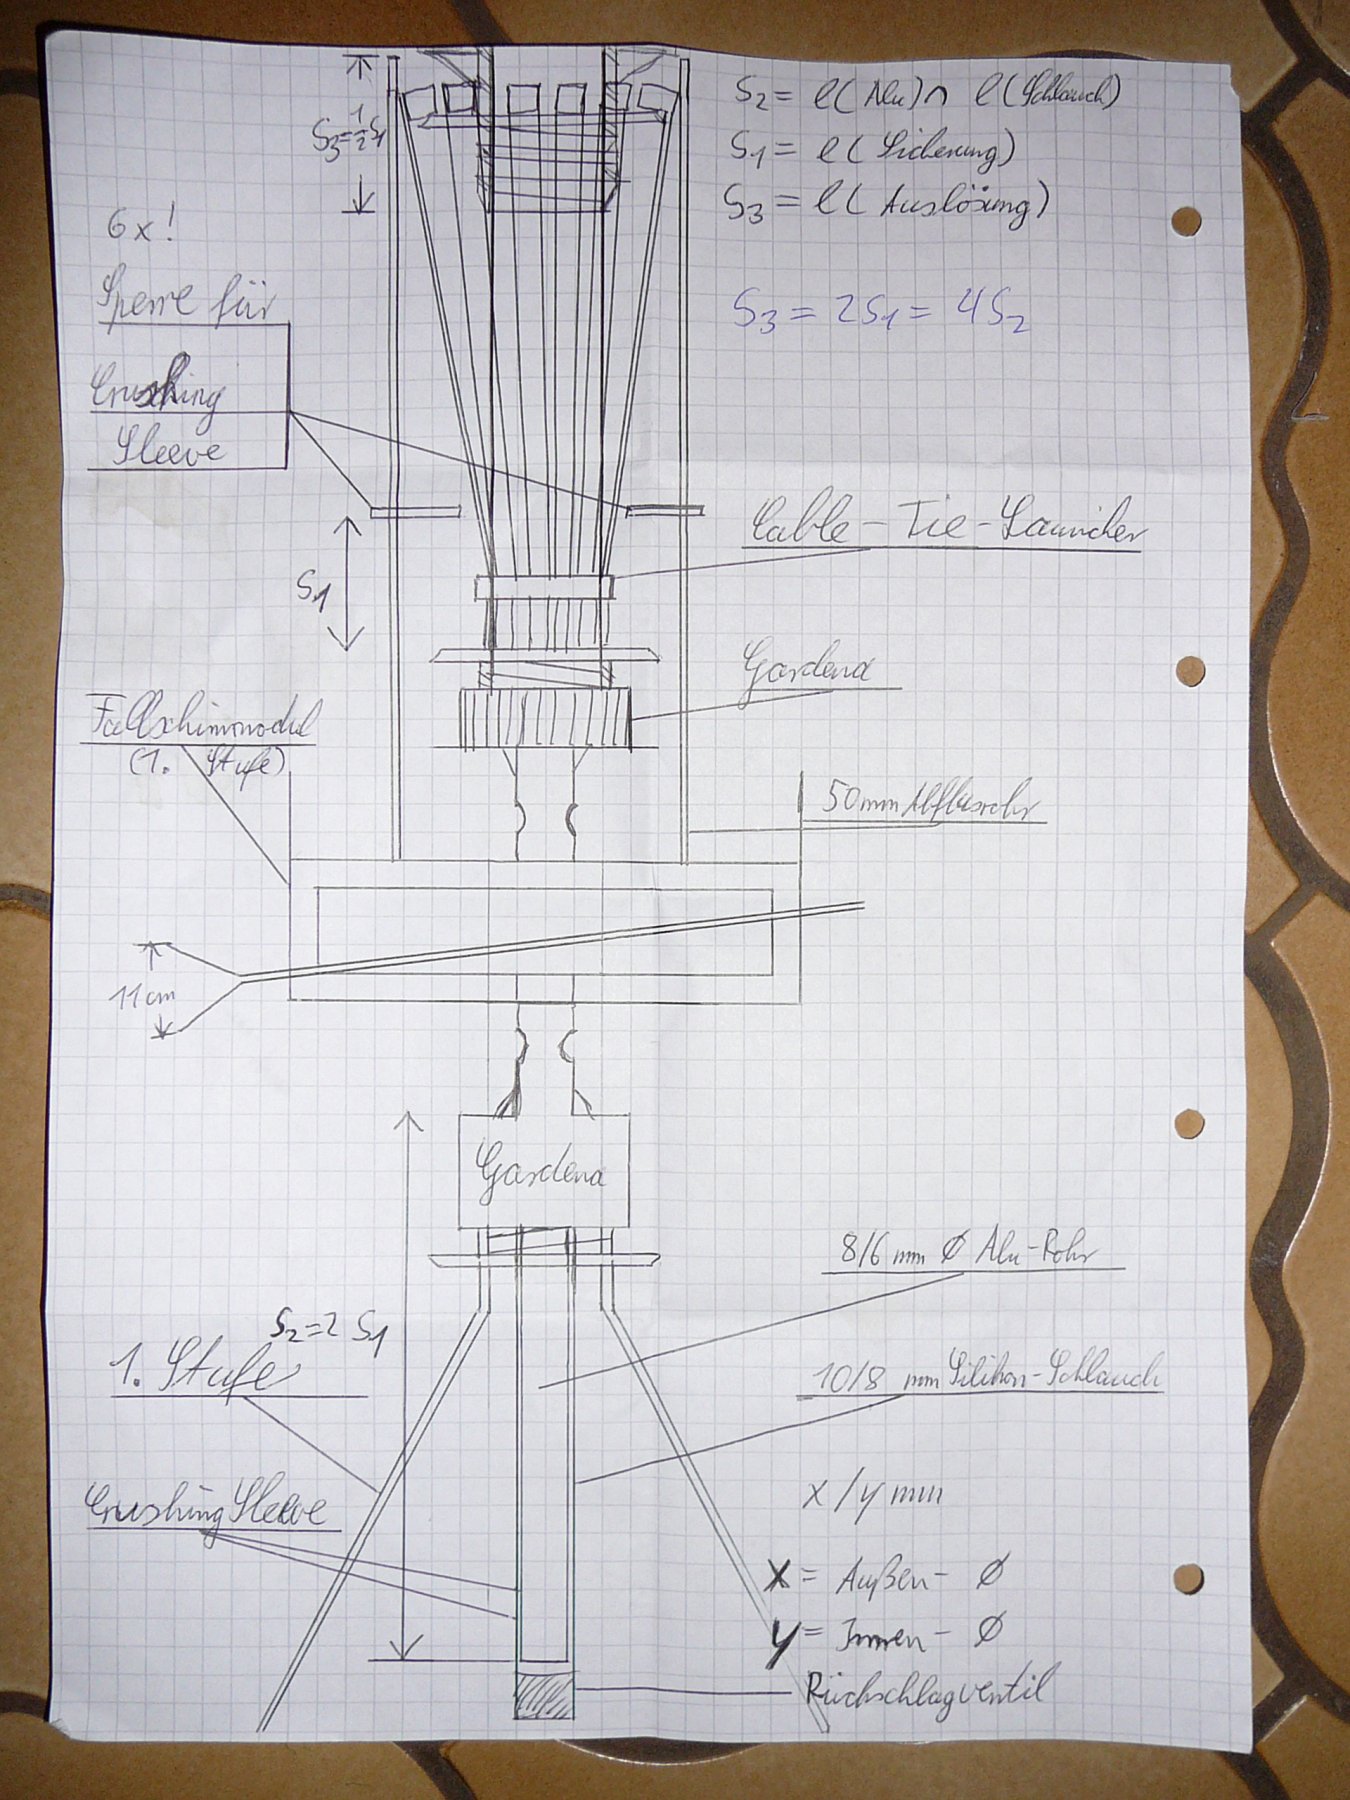 S3=½S1
S2 = l(Alu)∩ l(Schlauch)
S1 = l(Sicherung)
S3 = l(Auslösung)
6x!
Sperre für
Crushing
Sleeve
S3 = 2S1 = 4S2
Cable-Tie-Launcher
S1
Gardena
Fallschirmmodul
(1. Stufe)
50mm Abflussrohr
11cm
Gardena
8/6 mm Ø Alu-Rohr
S2=2 S1
1. Stufe
10/8 mm Silikon-Schlauch
Crushing Sleeve
x/y mm
x = Außen-Ø
y = Innen-Ø
Rückschlagventil